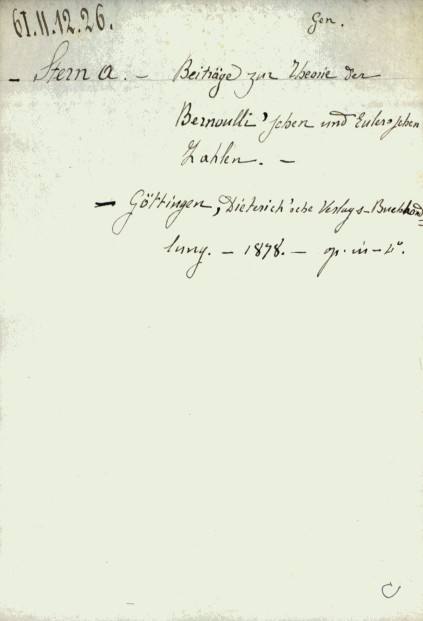 61.11.12.26.
Gen.
- Stern A. - Beiträge zur Theorie der
Bernoulli'schen und Eulerschen
Zahlen. -
- Göttingen, Dieterich'sche Verlags-Buchhand
lung. - 1878. - op. in - 4°.